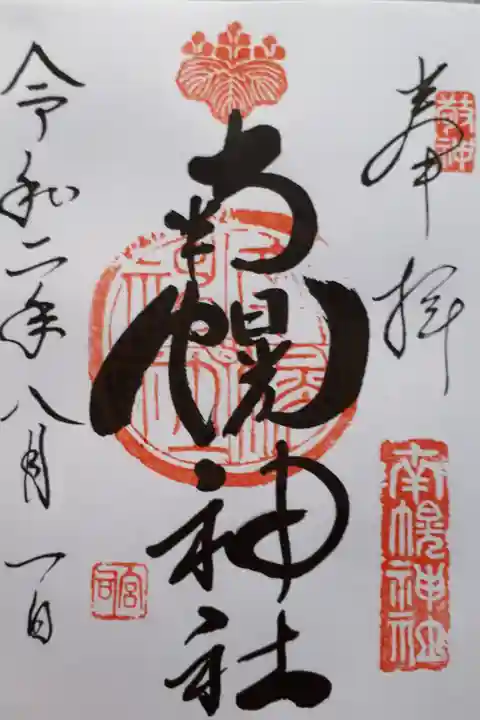 奉拝
敬神
南幌神社
南幌神社
令和二年八月一日
宮司